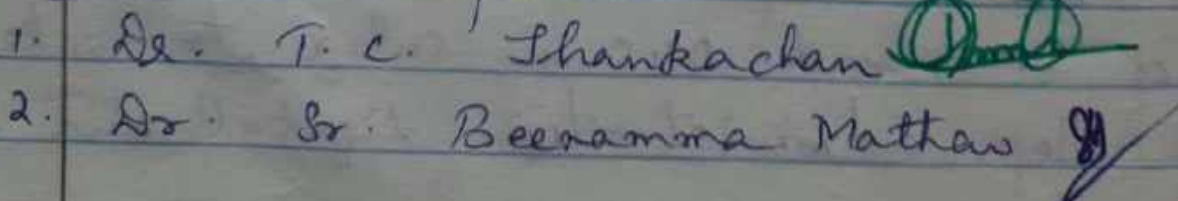 1. Dr. T. C. Thankachan
2. Dr. Sr. Beenamma Mathew